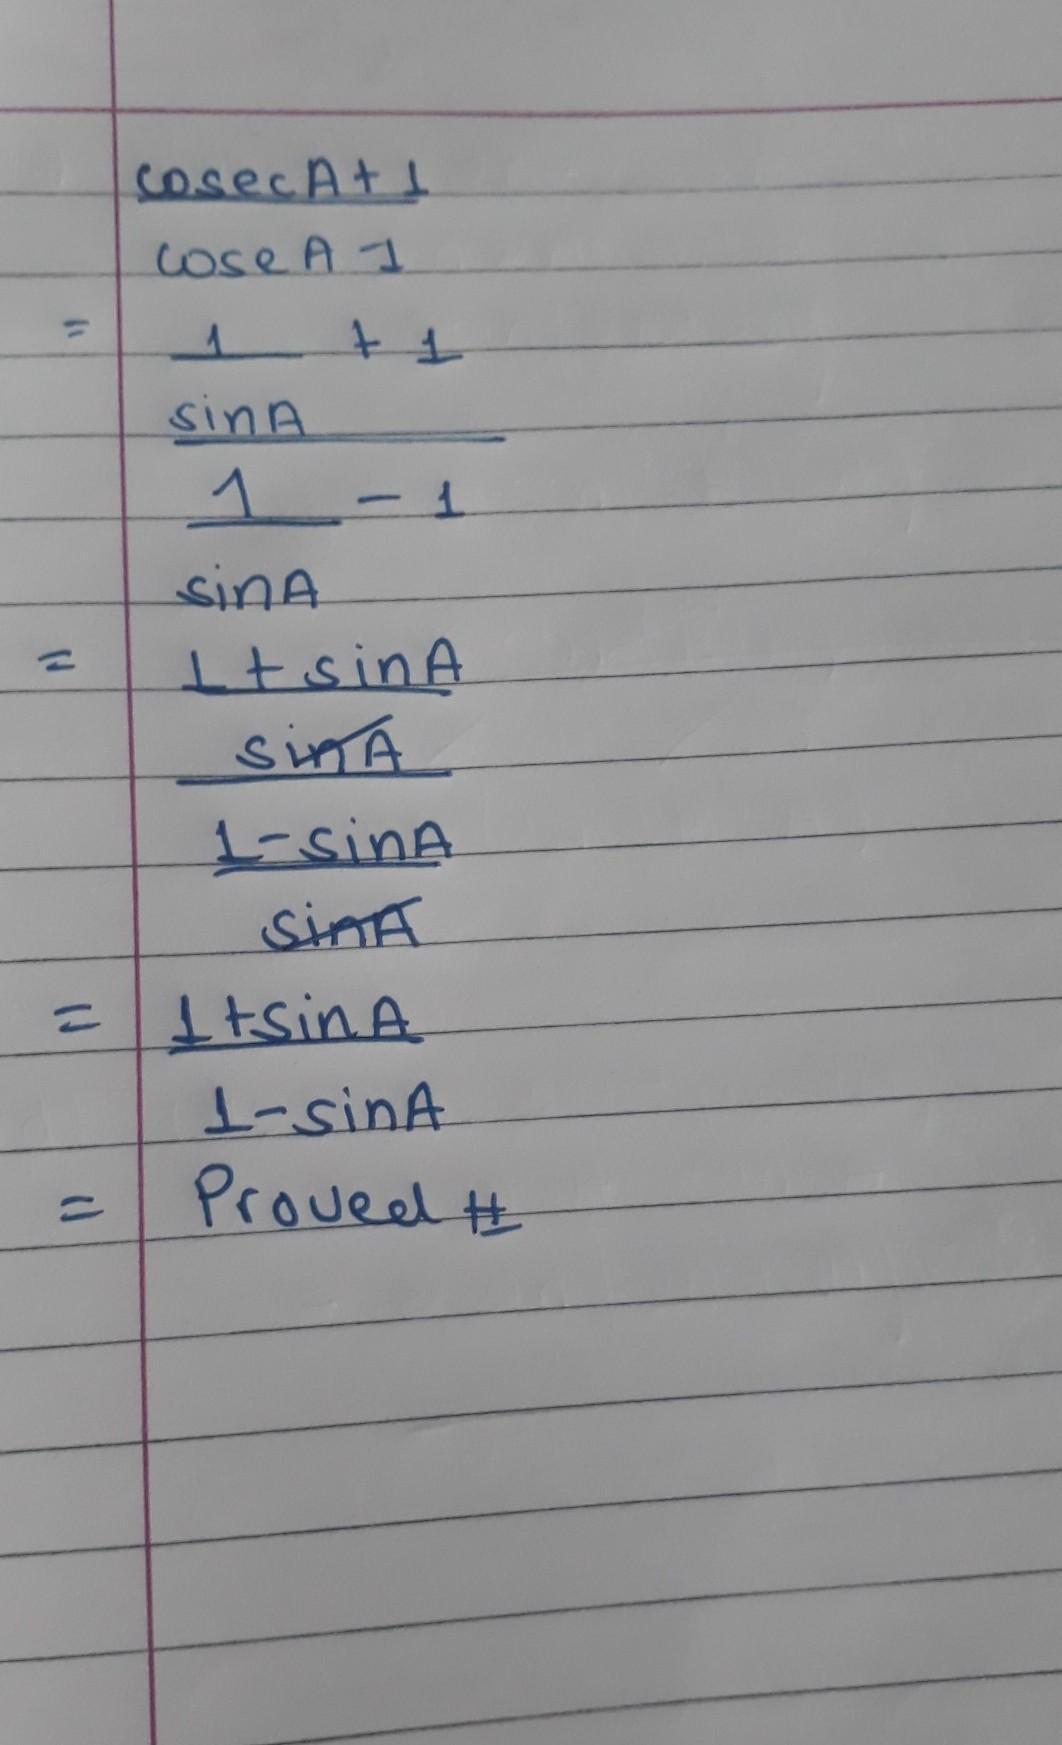 cosecA+1
coseA-1
= 1 + 1
sinA
1 - 1
sinA
= 1+sinA
sinA
1-sinA
sinA
= 1+sinA
1-sinA
= Proved #